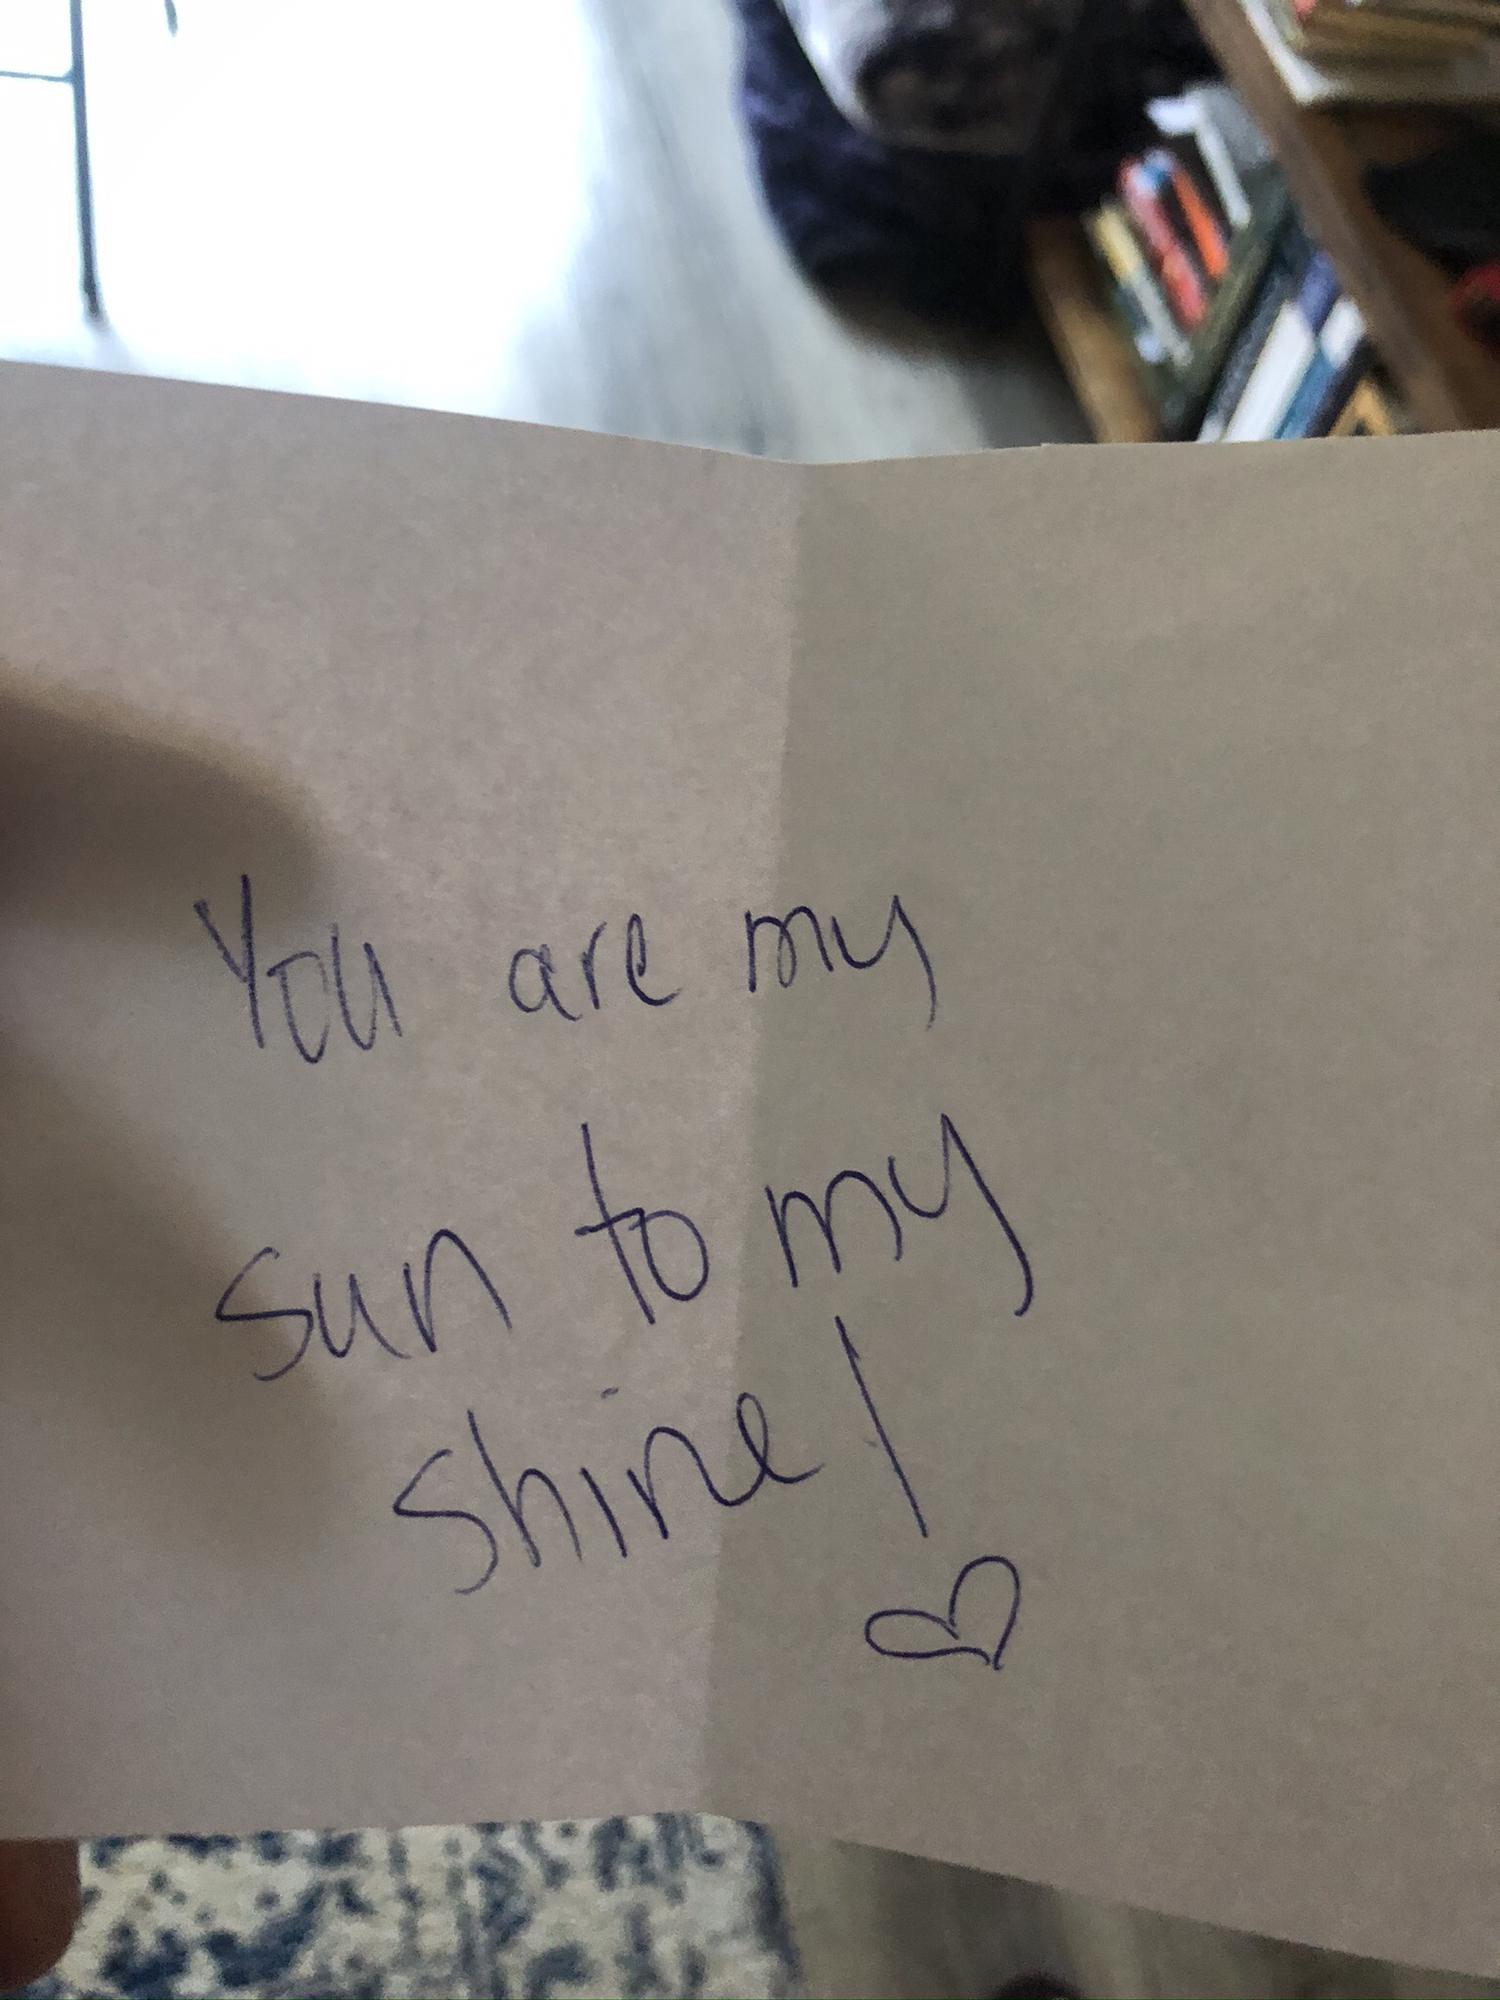 You are my
sun to my
shine!